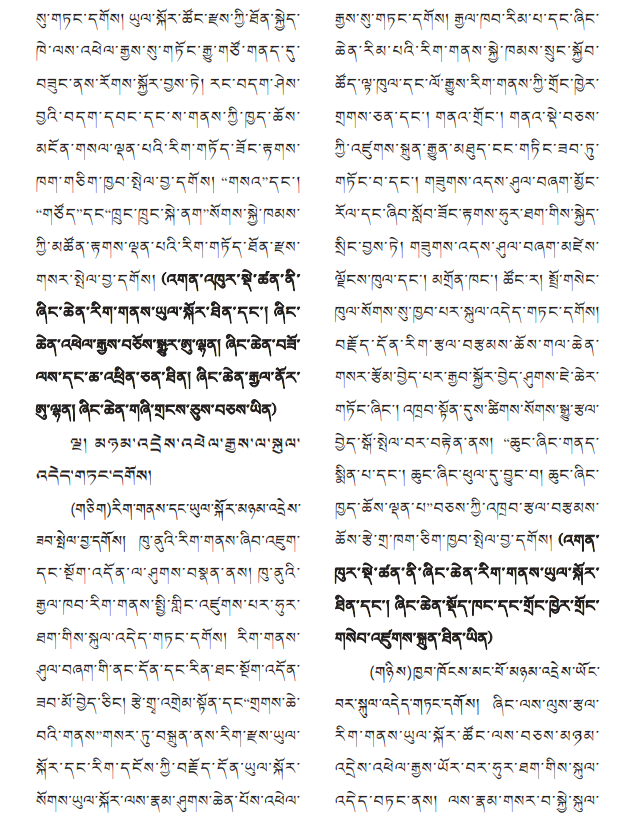 སུ་གཏང་དགོས། ཡུལ་སྐོར་ཚོང་རྫས་ཀྱི་ཐོན་སྐྱེད་
ཁེ་ལས་འཕེལ་རྒྱས་སུ་གཏོང་རྒྱུ་གཙོ་གནད་དུ་
བཟུང་ནས་རོགས་སྐྱོར་བྱས་ཏེ། རང་བདག་ཤེས་
བྱའི་བདག་དབང་དང་ས་གནས་ཀྱི་ཁྱད་ཆོས་
མངོན་གསལ་ལྡན་པའི་རིག་གཏོད་ཟོང་རྟགས་
ཁག་གཅིག་ཁྱབ་སྤེལ་བྱ་དགོས། “གསའ”དང་།
“གཙོད”དང“ཁྲུང་ཁྲུང་སྐེ་ནག”སོགས་སྐྱེ་ཁམས་
ཀྱི་མཚོན་རྟགས་ལྡན་པའི་རིག་གཏོད་ཐོན་རྫས་
གསར་སྤེལ་བྱ་དགོས། (འགན་འཁུར་སྡེ་ཚན་ནི་
ཞིང་ཆེན་རིག་གནས་ཡུལ་སྐོར་ཐིན་དང་། ཞིང་
ཆེན་འཕེལ་རྒྱས་བཅོས་སྒྱུར་ཨུ་ལྷན། ཞིང་ཆེན་བཟོ་
ལས་དང་ཆ་འཕྲིན་ཅན་ཐིན། ཞིང་ཆེན་རྒྱལ་ནོར་
ཨུ་ལྷན། ཞིང་ཆེན་གཞི་གྲངས་ཅུས་བཅས་ཡིན)
ལྔ། མཉམ་འདྲེས་འཕེལ་རྒྱས་ལ་སྐུལ་
འདེད་གཏང་དགོས།
(གཅིག)རིག་གནས་དང་ཡུལ་སྐོར་མཉམ་འདྲེས་
ཟབ་སྤེལ་བྱ་དགོས། ཁུ་ནུའི་རིག་གནས་ཞིབ་འཇུག་
དང་སྔོག་འདོན་ལ་ཤུགས་བསྣན་ནས། ཁུ་ནུའི་
རྒྱལ་ཁབ་རིག་གནས་སྤྱི་གླིང་འཛུགས་པར་ཧུར་
ཐག་གིས་སྐུལ་འདེད་གཏང་དགོས། རིག་གནས་
ཤུལ་བཞག་གི་ནང་དོན་དང་རིན་ཐང་སྔོག་འདོན་
ཟབ་མོ་བྱེད་ཅིང། རྩེ་གྲྭ་འགྲེམ་སྟོན་དང“གྲགས་ཆེ་
བའི་གནས”གསར་ཏུ་བསྐྲུན་ནས་རིག་རྫས་ཡུལ་
སྐོར་དང་རིག་དངོས་ཀྱི་བརྗོད་དོན་ཡུལ་སྐོར་
སོགས་ཡུལ་སྐོར་ལས་རྣམ་ཤུགས་ཆེན་པོས་འཕེལ་
རྒྱས་སུ་གཏང་དགོས། རྒྱལ་ཁབ་རིམ་པ་དང་ཞིང་
ཆེན་རིམ་པའི་རིག་གནས་སྐྱེ་ཁམས་སྲུང་སྐྱོབ་
ཚོད་ལྟ་ཁུལ་དང་ལོ་རྒྱུས་རིག་གནས་ཀྱི་གྲོང་ཁྱེར་
གྲགས་ཅན་དང་། གནའ་གྲོང་། གནའ་སྡེ་བཅས་
ཀྱི་འཛུགས་སྐྲུན་རྒྱུན་མཐུད་ངང་གཏིང་ཟབ་ཏུ་
གཏོང་བ་དང་། གཟུགས་འདས་ཤུལ་བཞག་མྱོང་
རོལ་དང་ཞིབ་སློབ་ཟོང་རྟགས་ཧུར་ཐག་གིས་སྐྱེད་
སྲིང་བྱས་ཏེ། གཟུགས་འདས་ཤུལ་བཞག་མཛེས་
ལྗོངས་ཁུལ་དང་། མགྲོན་ཁང་། ཚོང་ར། སྤྲོ་གསེང་
ཁུལ་སོགས་སུ་ཁྱབ་པར་སྐུལ་འདེད་གཏང་དགོས།
བརྗོད་དོན་རིག་རྩལ་བརྩམས་ཆོས་གལ་ཆེན་
གསར་རྩོམ་བྱེད་པར་རྒྱབ་སྐྱོར་བྱེད་ཤུགས་ཇེ་ཆེར་
གཏོང་ཞིང་། འཁྲབ་སྟོན་དུས་ཚིགས་སོགས་སྒྱུ་རྩལ་
བྱེད་སྒོ་སྤེལ་བར་བརྟེན་ནས། “ཆུང་ཞིང་གནད་
སྨིན་པ་དང་། ཆུང་ཞིང་ཕུལ་དུ་བྱུང་བ། ཆུང་ཞིང་
ཁྱད་ཆོས་ལྡན་པ”བཅས་ཀྱི་འཁྲབ་རྩལ་བརྩམས་
ཆོས་རྩེ་གྲ་ཁག་ཅིག་ཁྱབ་སྤེལ་བྱ་དགོས། (འགན་
ཁུར་སྡེ་ཚན་ནི་ཞིང་ཆེན་རིག་གནས་ཡུལ་སྐོར་
ཐིན་དང་། ཞིང་ཆེན་སྡོད་ཁང་དང་གྲོང་ཁྱེར་གྲོང་
གསེབ་འཛུགས་སྐྲུན་ཐིན་ཡིན)
(གཉིས)ཁྱབ་ཁོངས་མང་པོ་མཉམ་འདྲེས་ཡོང་
བར་སྐུལ་འདེད་གཏང་དགོས། ཞིང་ལས་ལུས་རྩལ་
རིག་གནས་ཡུལ་སྐོར་ཚོང་ལས་བཅས་མཉམ་
འདྲེས་འཕེལ་རྒྱས་ཡོར་བར་ཧུར་ཐག་གིས་སྐུལ་
འདེད་བཏང་ནས། ལས་རྣམ་གསར་བ་སྐྱེ་སྐུལ་